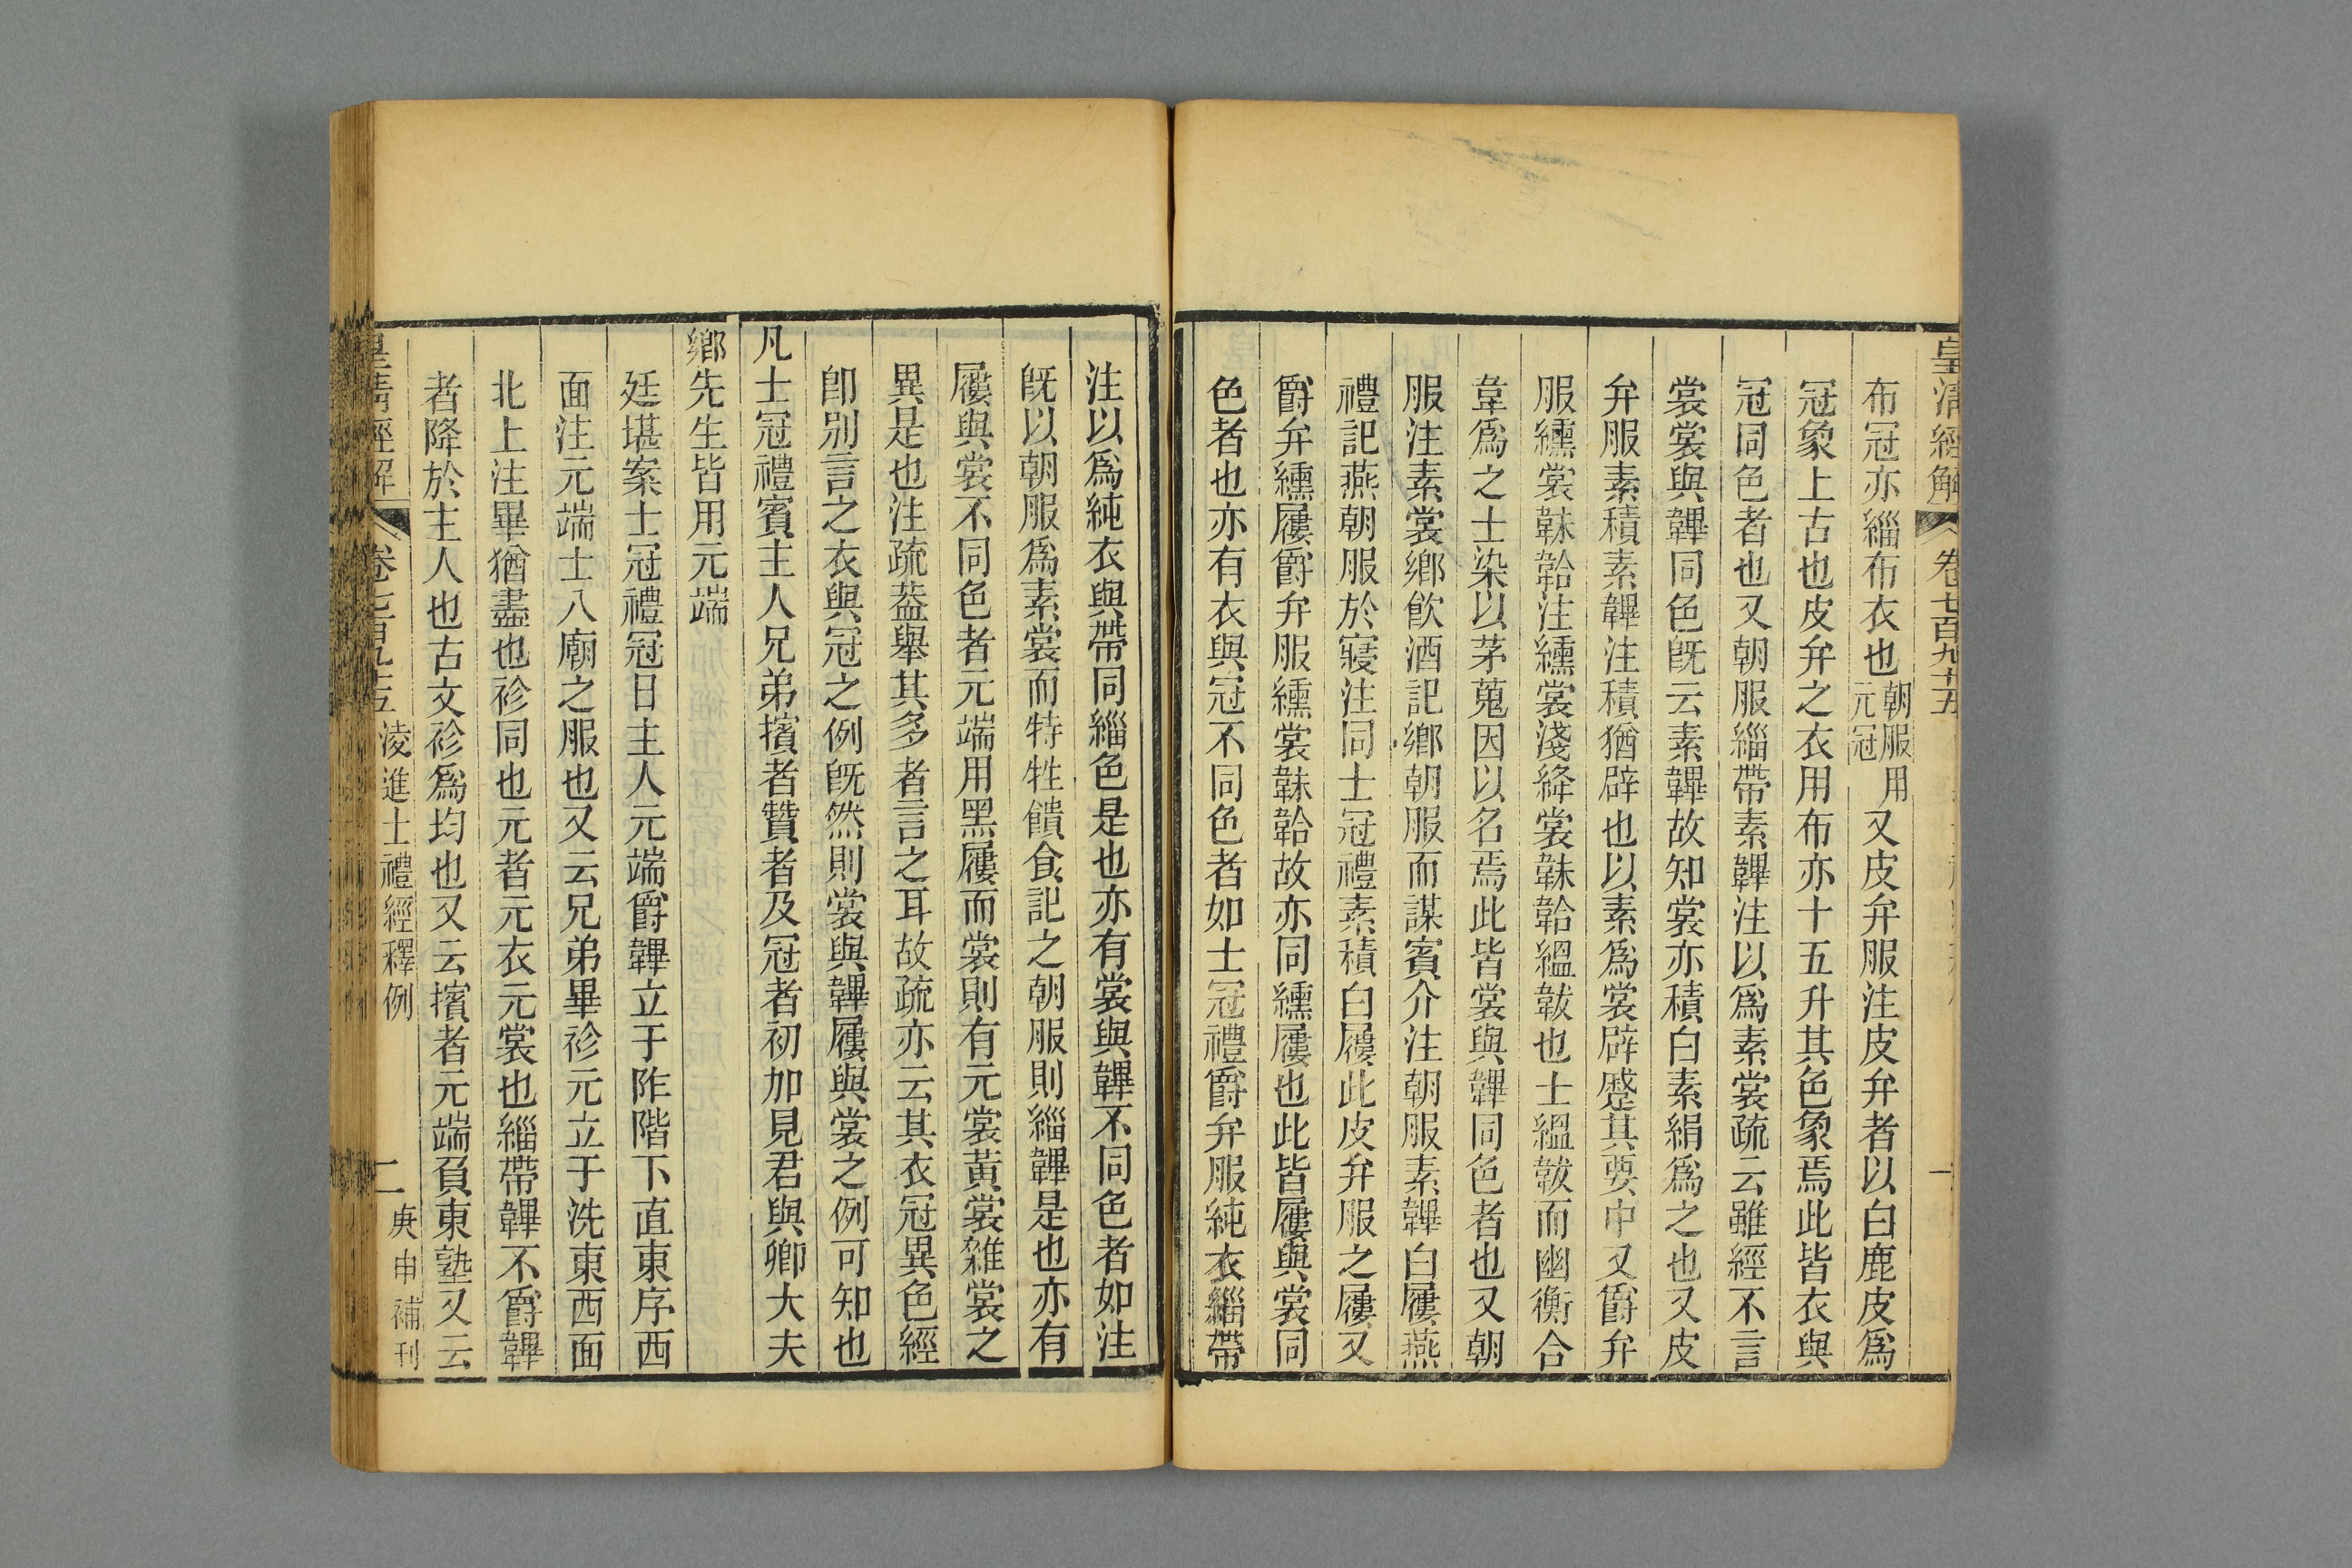 皇清經解 卷七百九十五 一
布冠亦緇布衣也朝服用元冠又皮弁服注皮弁者以白鹿皮爲
冠象上古也皮弁之衣用布亦十五升其色象焉此皆衣與
冠同色者也又朝服緇帶素韠注以爲素裳疏云雖經不言
裳裳與韠同色旣云素韠故知裳亦積白素絹爲之也又皮
弁服素積素韠注積猶辟也以素爲裳辟蹙其要中又爵弁
服纁裳韎韐注纁裳淺絳裳韎韐縕韍也士縕韍而幽衡合
韋爲之士染以茅蒐因以名焉此皆裳與韠同色者也又朝
服注素裳鄉飮酒記鄉朝服而謀賓介注朝服素韠白屨燕
禮記燕朝服於寢注同士冠禮素積白屨此皮弁服之屨又
爵弁纁屨爵弁服纁裳韎韐故亦同纁屨也此皆屨與裳同
色者也亦有衣與冠不同色者如士冠禮爵弁服純衣緇帶
注以爲純衣與帶同緇色是也亦有裳與韠不同色者如注
旣以朝服爲素裳而特牲饋食記之朝服則緇韠是也亦有
屨與裳不同色者元端用黑屨而裳則有元裳黃裳雜裳之
異是也注疏葢舉其多者言之耳故疏亦云其衣冠異色經
卽別言之衣與冠之例旣然則裳與韠屨與裳之例可知也
凡士冠禮賓主人兄弟擯者贊者及冠者初加見君與卿大夫
鄉先生皆用元端
廷堪案士冠禮冠日主人元端爵韠立于阼階下直東序西
面注元端士入廟之服也又云兄弟畢袗元立于洗東西面
北上注畢猶盡也袗同也元者元衣元裳也緇帶韠不爵韠
者降於主人也古文袗爲均也又云擯者元端負東塾又云
皇清經解 卷七百九十五 淩進士禮經釋例 二 庚申補刊